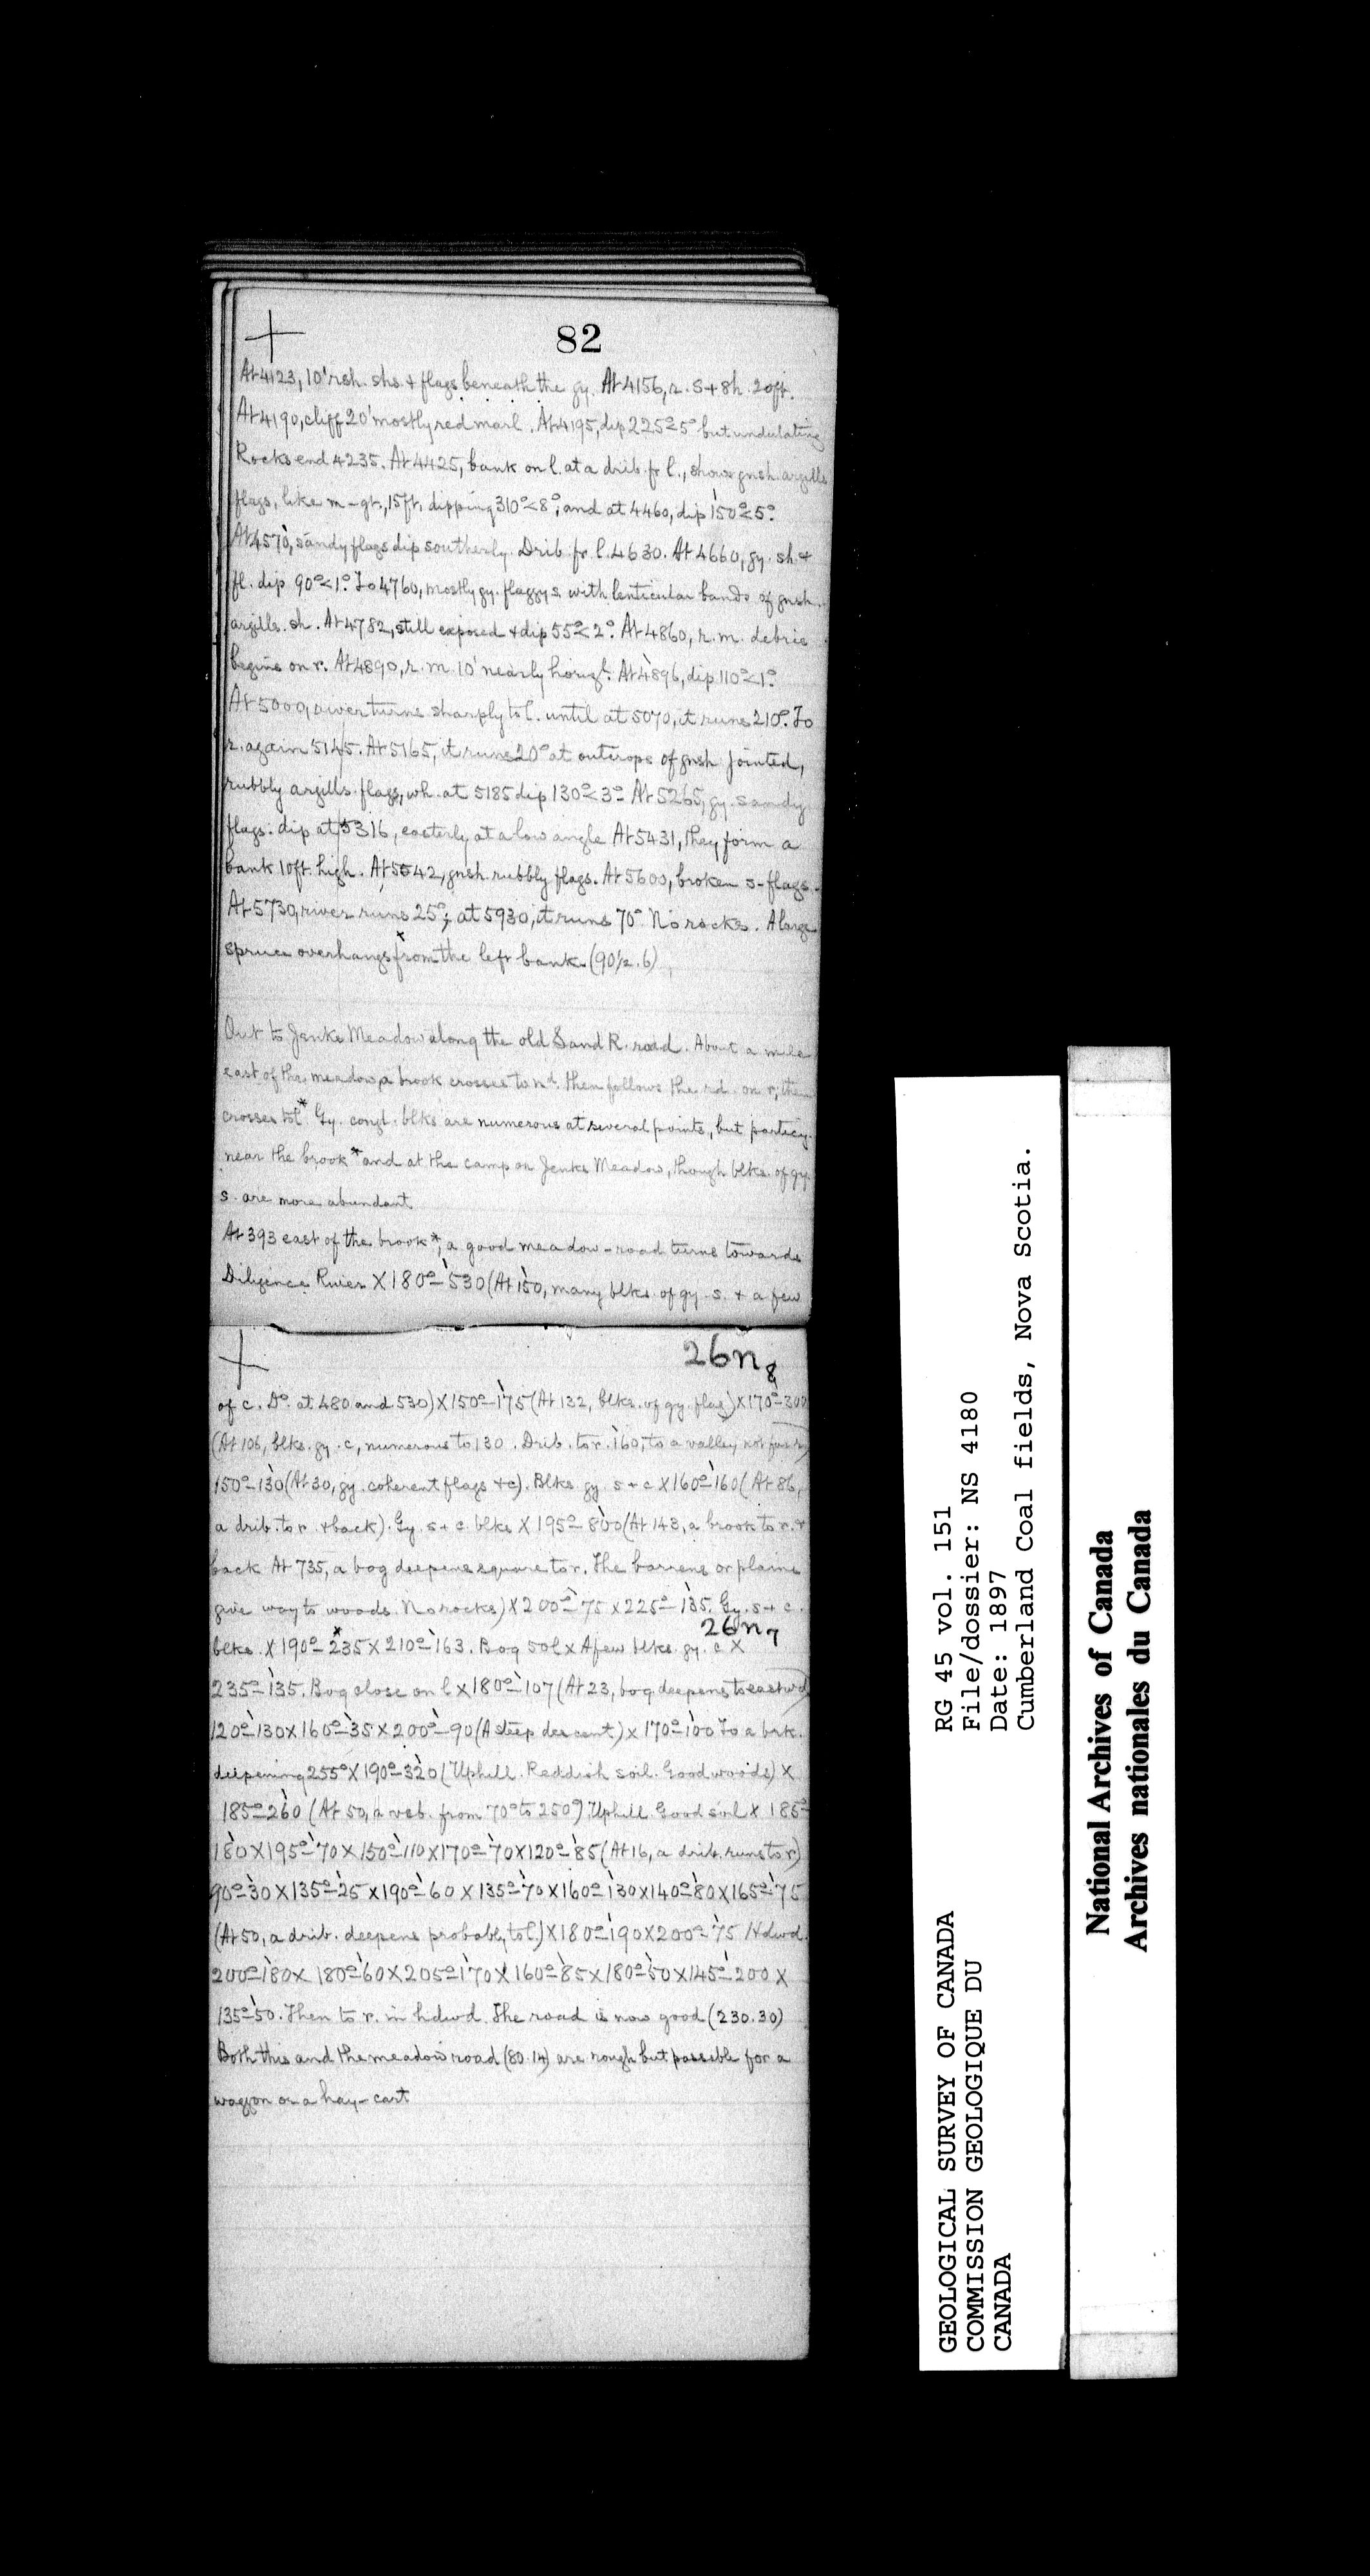 82
At 4123, 10' rsh. shs. + flags beneath the gy. At 4156, r. s + sh. 20 ft.
At 4190, cliff 20' mostly red marl. At 4195, dip 225°<5° but undulating
Rocks end 4235. At 4425, bank on l. at a drib. fr l., shows gnsh. argills
flags, like m-gt., 15 ft. dipping 310°<8°; and at 4460, dip 150°<5°.
At 4570, sandy flags dip southerly. Drib. fr l. 4630. At 4660, gy. sh. +
fl. dip 90°<1°. To 4760, mostly gy. flaggy s. with lenticular bands of gnsh.
argills. sh. At 4782, still exposed + dip 55°<2°. At 4860, r. m. debris
begins on r. At 4890, r. m. 10' nearly horizl. At 4896, dip 110°<1°.
At 5000, river turns sharply to l. until at 5070, it runs 210°. To
r. again 5145. At 5165, it runs 20° at outcrops of gnsh jointed,
rubbly argills. flags, wh. at 5185 dip 130°<3° At 5265, gy. sandy
flags. dip at 5316, easterly at a low angle At 5431, they form a
bank 10 ft. high. At 5542, gnsh. rubbly flags. At 5600, broken s-flags.
At 5730, river runs 25°; at 5930, it runs 70° No rocks. A large
spruce overhangs x from the left bank. (90½.6)
Out to Jenks Meadow along the old Sand R. road. About a mile
east of the meadow a brook crosses to rd. then follows the rd. on r, then
crosses to l* Gy. congl. blks are numerous at several points, but particy.
near the brook * and at the camp on Jenks Meadow, though blks. of gy.
s. are more abundant
At 393 east of the brook *, a good meadow-road turns towards
Diligence River X 180°-530 (At 150, many blks. of gy. s. + a few
26n8
of c. Do. at 480 and 530) X 150°-175 (At 132, blks. of gy. flag) X 170°-300
(At 106, blks. gy. c, numerous to 130. Drib. to r. 160, to a valley not far r)
150°-130 (At 30, gy. coherent flags + c). Blks. gy. s + c X 160°-160 (At 86,
a drib. to r. + back). Gy. s + c. blks X 195°-800 (At 143, a brook to r. +
back At 735, a bog deepens square to r. The barrens or plains
give way to woods. No rocks) X 200°-75 x 225°-135. Gy. s + c.
26n7
blks. X 190°-235 X 210°-163. Bog 50 l x A few blks. gy. c X
235°-135. Bog close on l x 180°-107 (At 23, bog deepens to eastwd)
120°-130 x 160°-35 x 200°-90 (A steep descent) x 170°-100 To a brk.
deepening 255° X 190°-320 (Uphill. Reddish soil. Good woods) X
185°-260 (At 50, a reb. from 70° to 250°) Uphill Good soil X 185°-
180 X 195°-70 x 150°-110 x 170°-70 x 120°-85 (At 16, a drib. runs to r)
90°-30 x 135°-25 x 190°-60 x 135°-70 x 160°-130 x 140°-80 x 165°-75
(At 50, a drib. deepens probably to l) X 180°-190 x 200°-75 Hdwd.
200°-180 x 180°-60 x 205°-170 x 160°-85 x 180°-50 x 145°-200 X
135°-50. Then to r. in hdwd. The road is now good (230.30)
Both this and the meadow road (80.14) are rough but passible for a
waggon or a hay-cart
GEOLOGICAL SURVEY OF CANADA
COMMISSION GEOLOGIQUE DU
CANADA
RG 45 vol. 151
File/dossier: NS 4180
Date: 1897
Cumberland Coal fields, Nova Scotia.
National Archives of Canada
Archives nationales du Canada